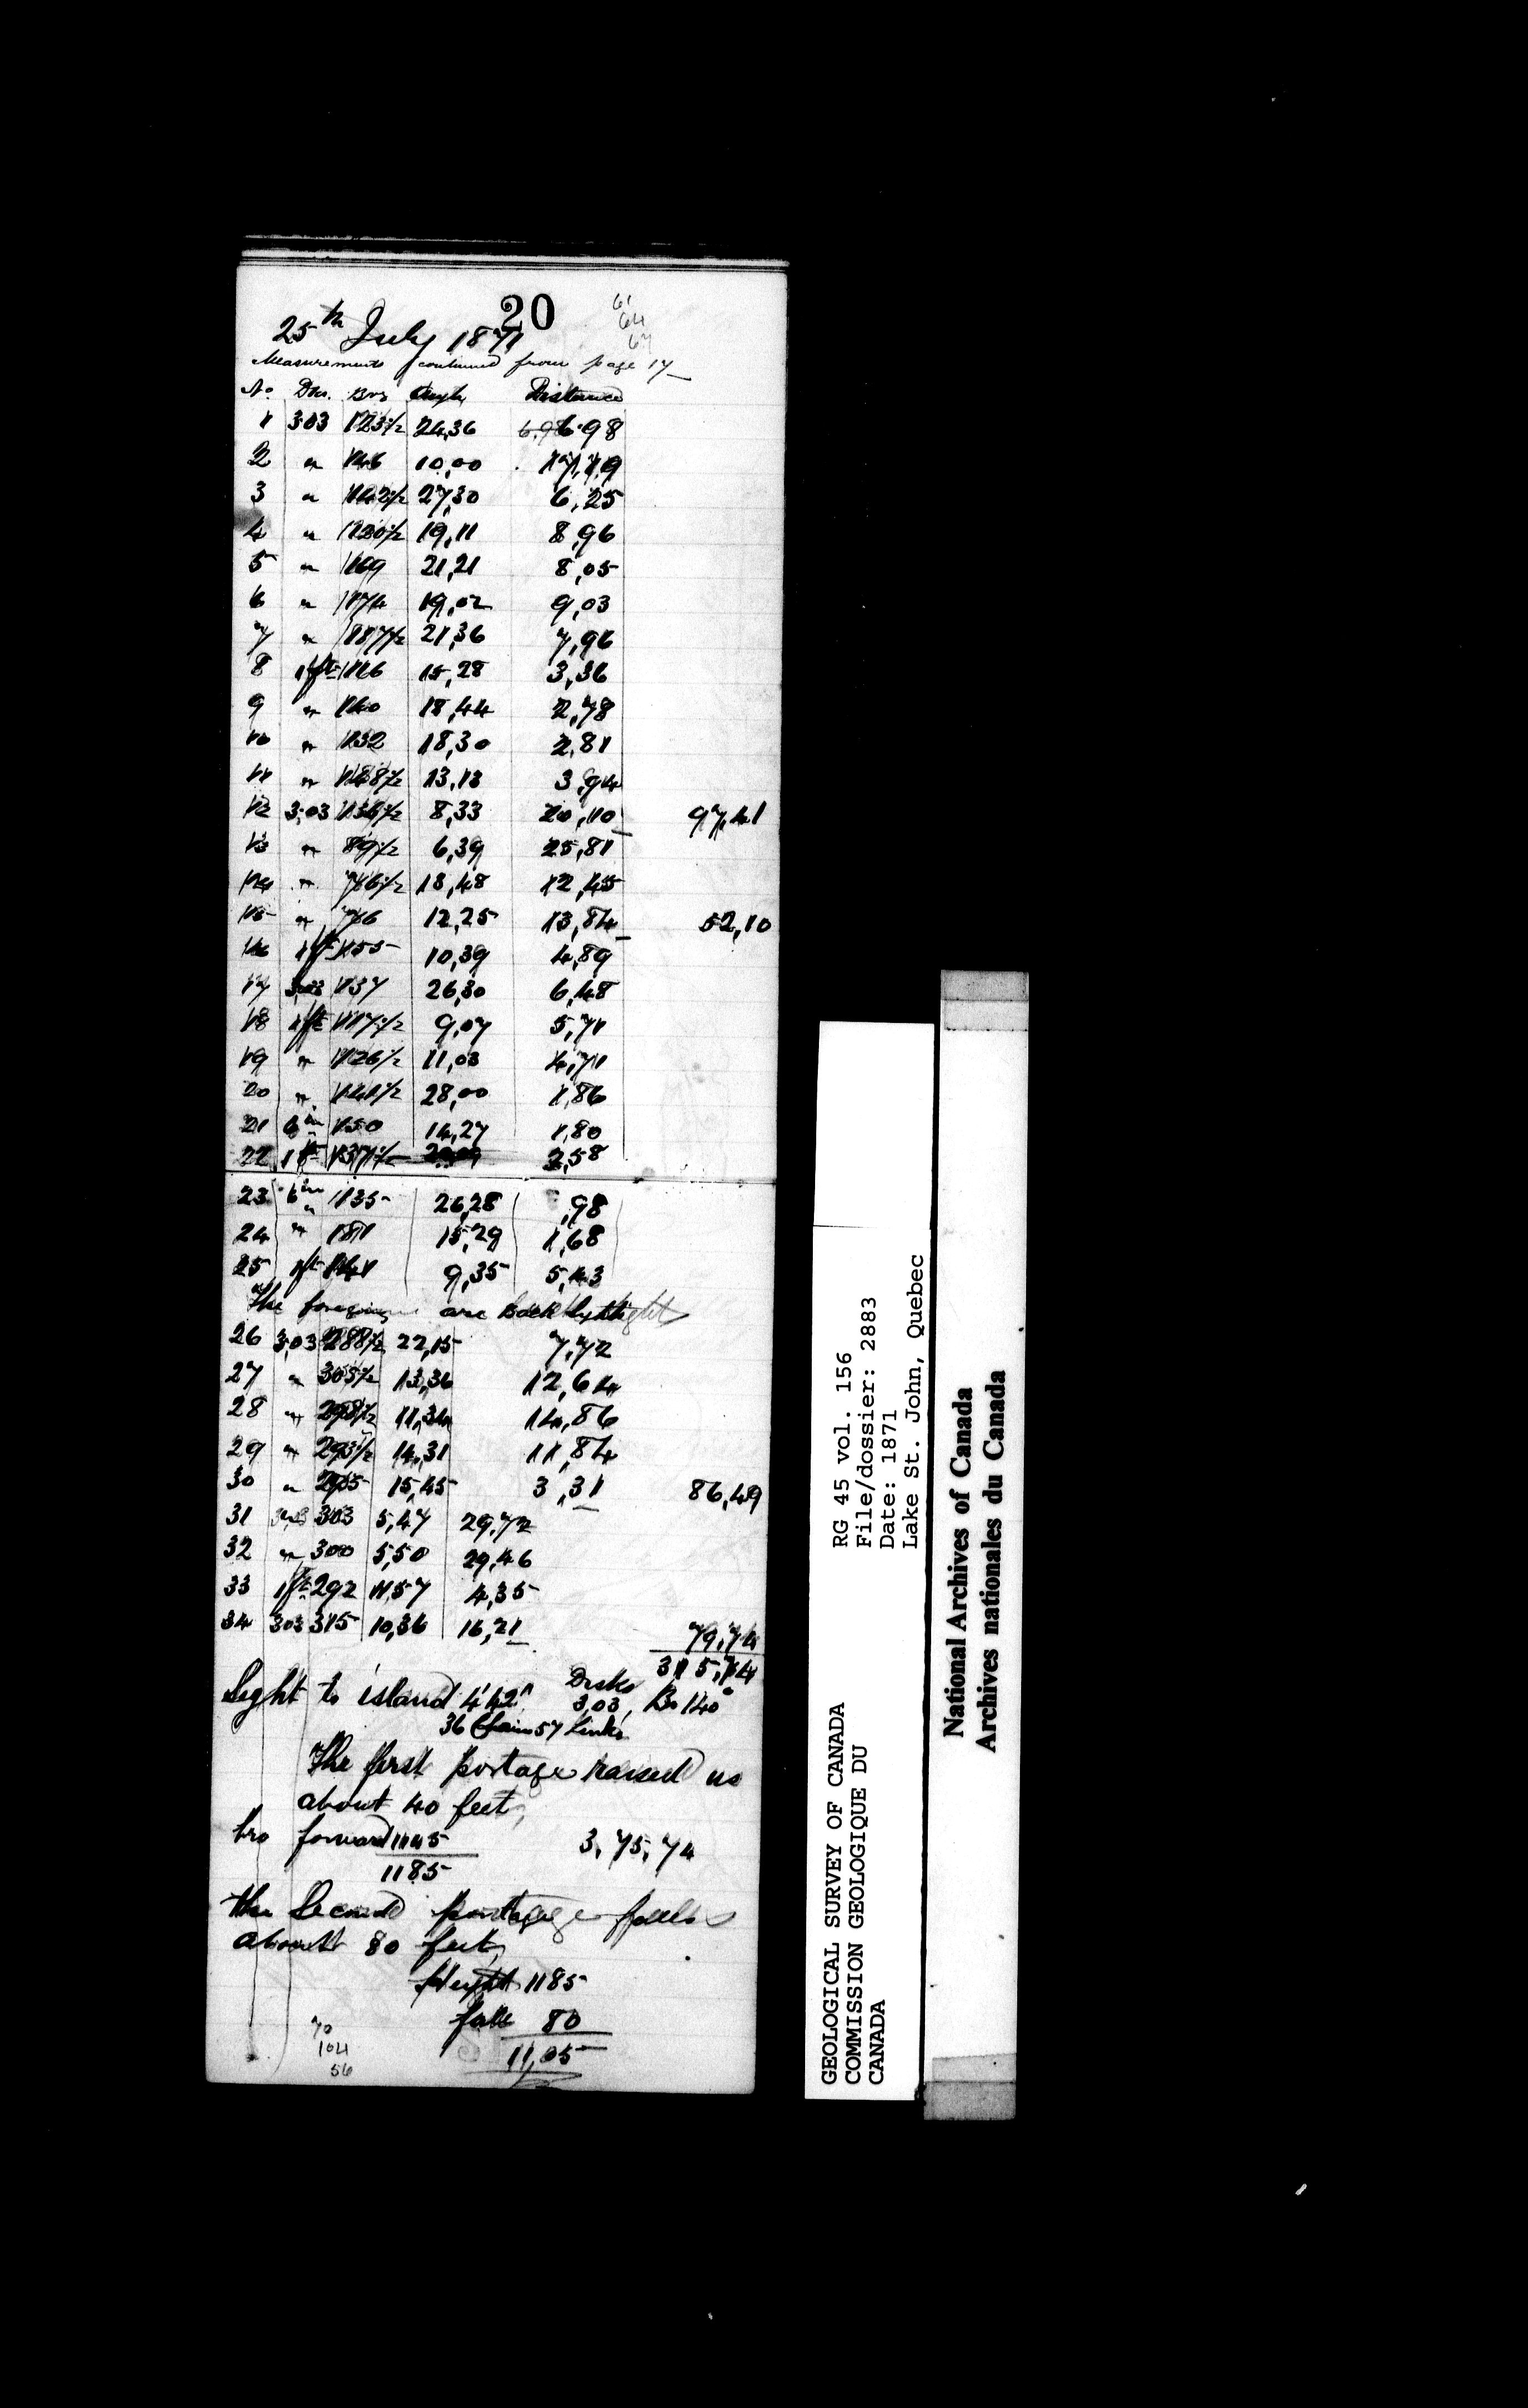 20
61
64
67
25th July 1871
Measurements continued from page 17
No. Dis. Brg Angle Distance
1 3.03 123 1/2 24,36 6.98
2 " 146 10,00 17,19
3 " 142 1/2 27,30 6,25
4 " 130 1/2 19,11 8,96
5 " 169 21,21 8,05
6 " 174 19,02 9,03
7 " 187 1/2 21,36 7,96
8 1 ft 116 15,28 3,36
9 " 140 18,44 2,78
10 " 132 18,30 2,81
11 " 148 1/2 13,13 3,94
12 3.03 136 1/2 8,33 20,10 97,41
13 " 89 1/2 6,39 25,81
14 " 76 1/2 13,48 12,45
15 " 76 12,25 13,84 52,10
16 1 ft 155 10,39 4,89
17 3.03 137 26,30 6,48
18 1 ft 117 1/2 9,07 5,71
19 " 126 1/2 11,03 4,71
20 " 141 1/2 28,00 1,86
21 6 in 150 14,27 1,80
22 1 ft 137 1/2 2,58
23 6 in 135 26,28 ,98
24 " 181 15,29 1,68
25 1 ft 141 9,35 5,43
The foregoing are Back
26 3.03 288 1/2 22,15 7,72
27 " 305 1/2 13,36 12,64
28 " 298 1/2 11,34 14,86
29 " 293 1/2 14,31 11,84
30 " 295 15,45 3,31 86,49
31 3.03 303 5,47 29,72
32 " 300 5,50 29,46
33 1 ft 292 11,57 4,35
34 3.03 315 10,36 16,21 79,74
315,74
Sight to island 4'42" Disks 3,03, Br 140°
36 Chain 57 Links
The first portage raised us
about 40 feet,
bro forward 1145 3,75,74
1185
the Second portage falls
about 80 feet,
Height 1185
fall 80
11,05
70
104
56
GEOLOGICAL SURVEY OF CANADA
COMMISSION GEOLOGIQUE DU
CANADA
RG 45 vol. 156
File/dossier: 2883
Date: 1871
Lake St. John, Quebec
National Archives of Canada
Archives nationales du Canada